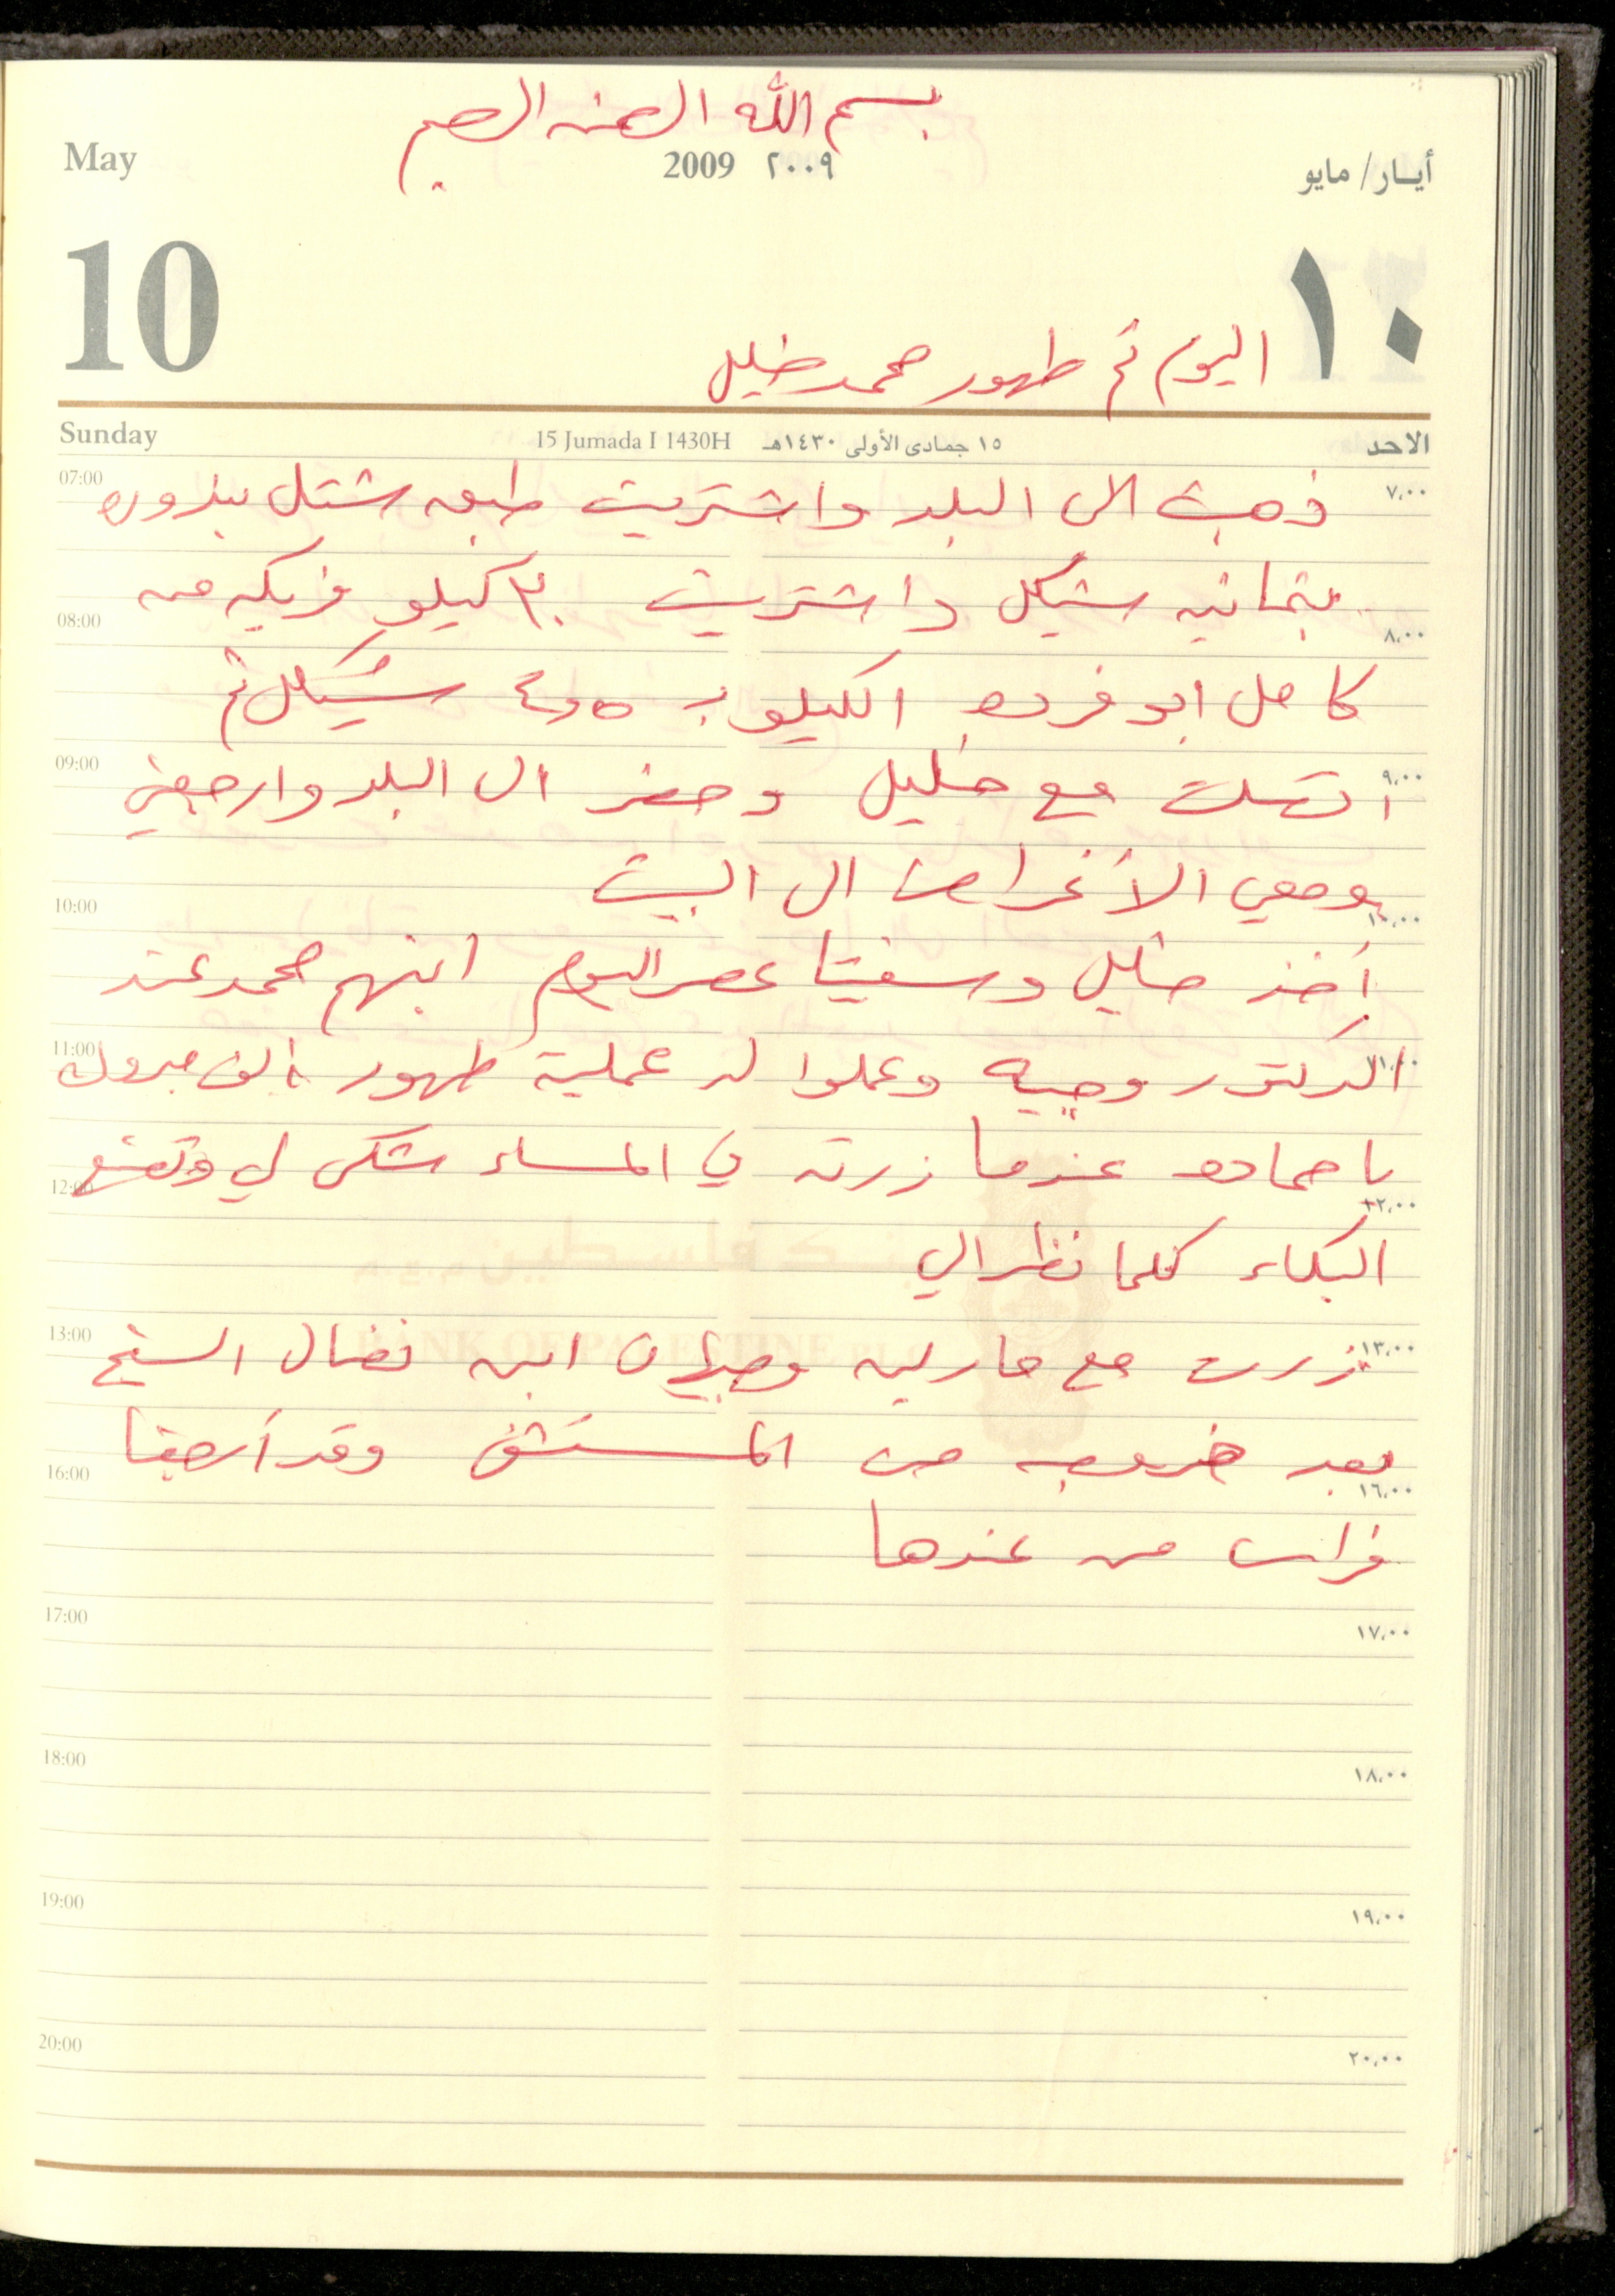 بسم الله الرحمن الرحيم
May 2009 ٢٠٠٩ أيـار/ مايو
10 ١٠
اليوم تم طهور محمد خليل
Sunday 15 Jumada I 1430H ١٥ جمادى الأولى ١٤٣٠هـ الاحد
07:00 ذهبت الى البلد واشتريت طبعه شتل بندوره ٧،٠٠
بثمانيه شيكل واشتريت ٢٠ كيلو فريكه من
08:00 ٨،٠٠
كامل ابو فرده الكيلو ب ٤،٥ شيكل ثم
09:00 اتصلت مع خليل وحضر الى البلد وارجعني ٩،٠٠
ومعي الأغراض الى البيت
10:00 ١٠،٠٠
أخذ خليل عصر اليوم ابنهم محمد عند
11:00 الدكتور وجيه وعملوا له عملية طهور الف مبروك ١١،٠٠
يا حماده عندما زرته في المساء شكى لي وتصنع
12:00 ١٢،٠٠
البكاء كلما نظر الي
13:00 زرت مع ابن نضال الشيخ ١٣،٠٠
بعد خروجه من المستشفى وقد أحضرنا
16:00 ١٦،٠٠
من عندها
17:00 ١٧،٠٠
18:00 ١٨،٠٠
19:00 ١٩،٠٠
20:00 ٢٠،٠٠